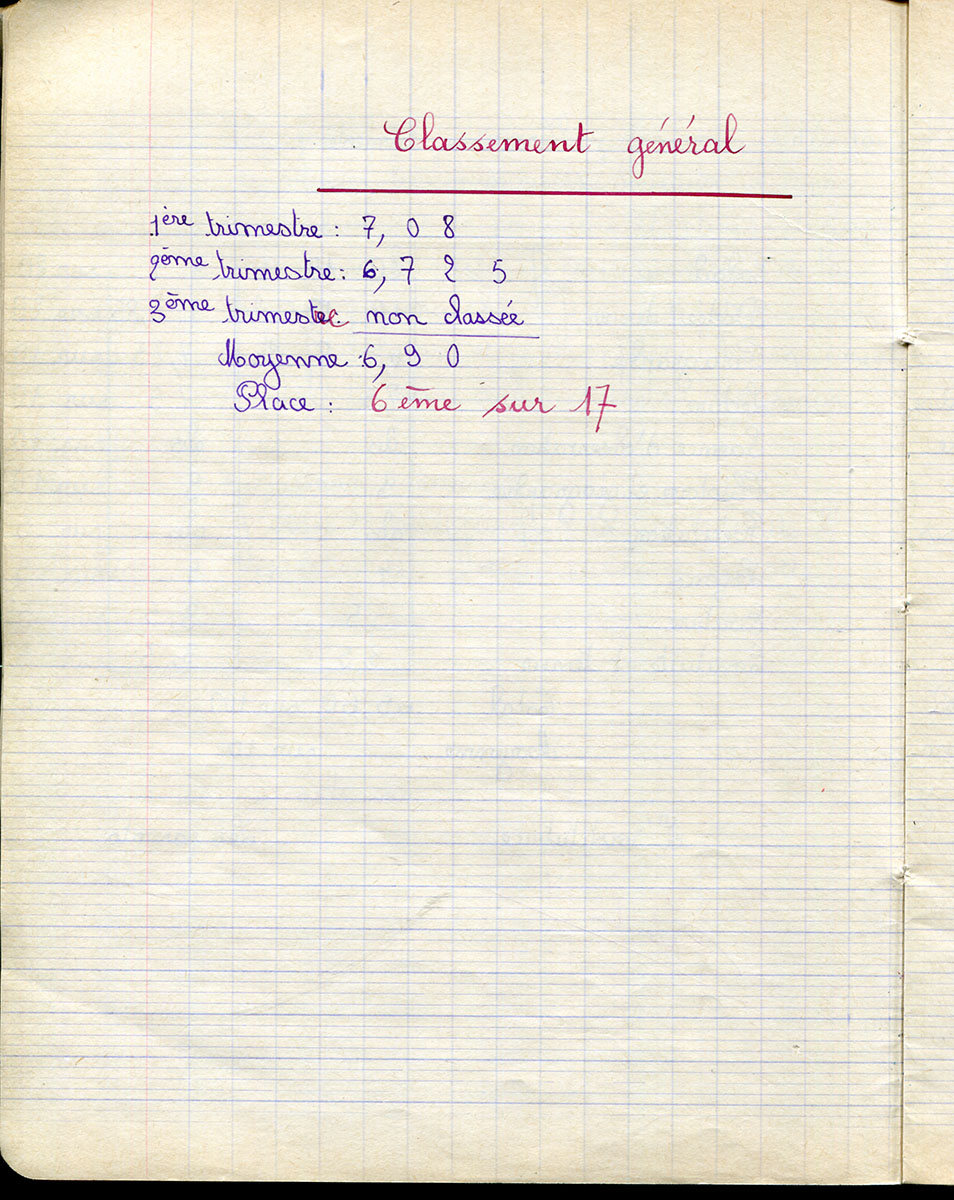 Classement général
1ère trimestre : 7, 0 8
2ème trimestre : 6, 7 2 5
3ème trimestre non classée
Moyenne : 6, 9 0
Place : 6 ème sur 17